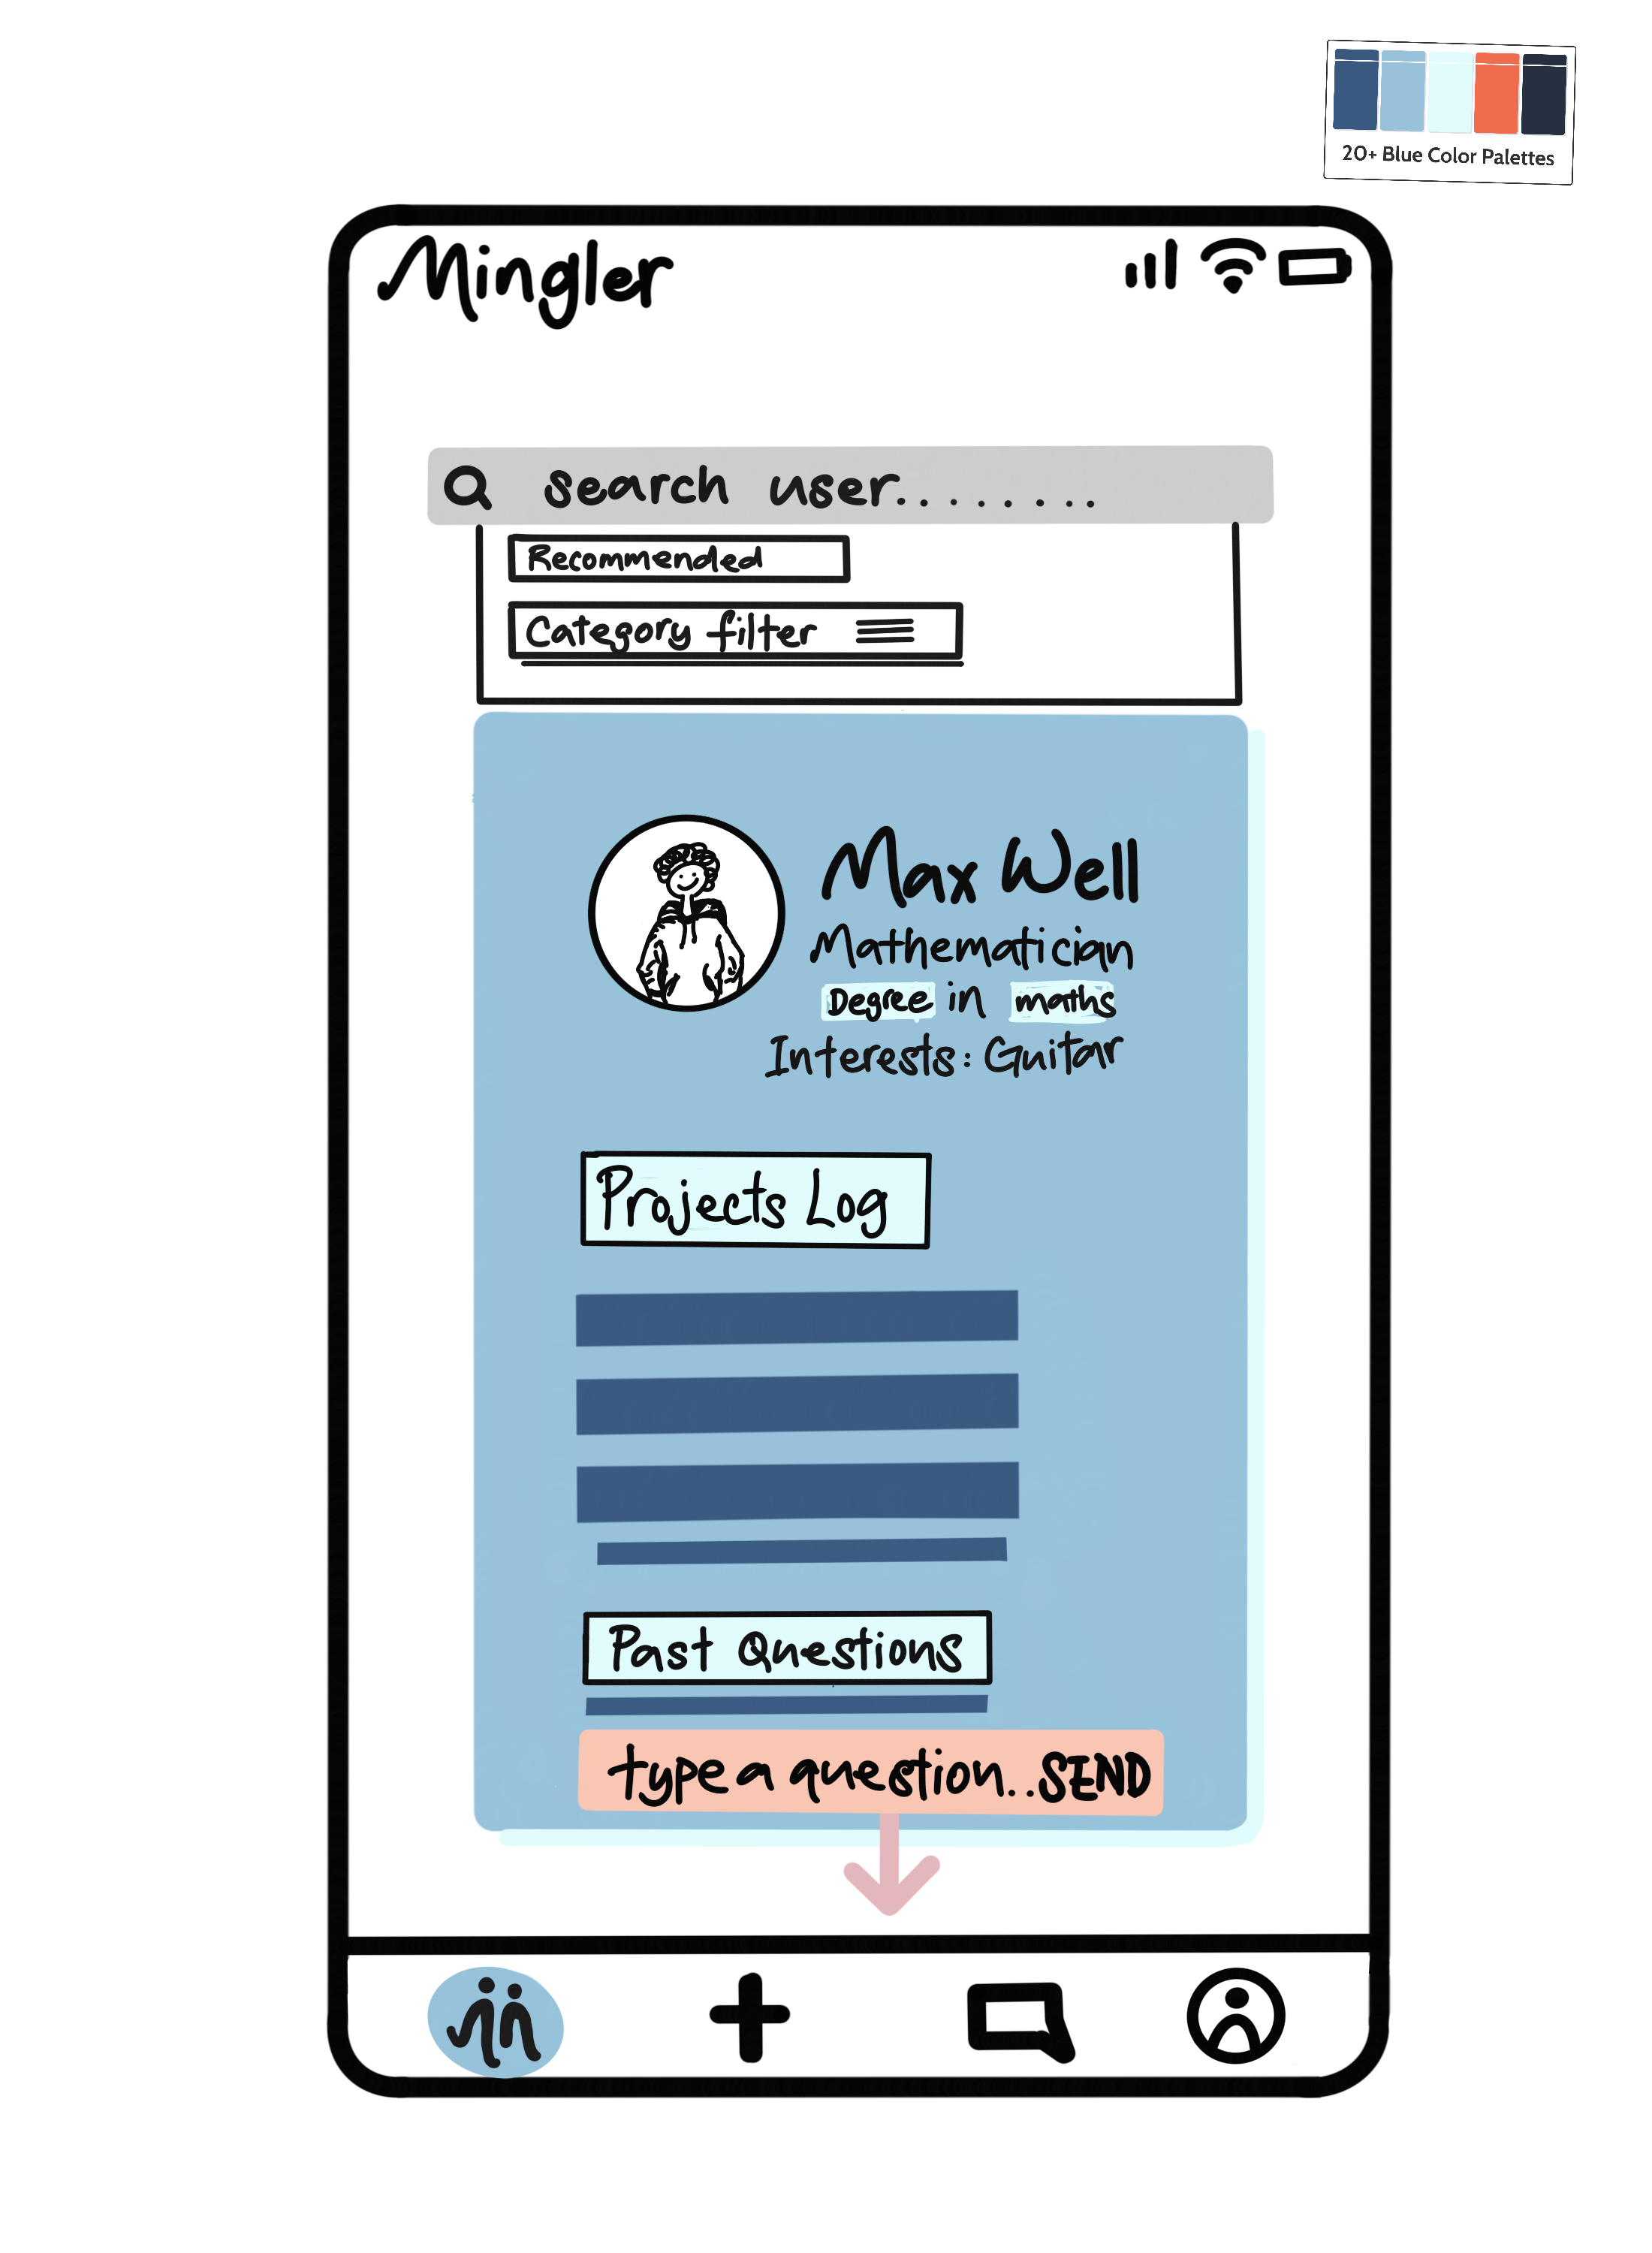 20+ Blue Color Palettes
Mingler
search user........
Recommended
Category filter
Max Well
Mathematician
Degree in maths
Interests: Guitar
Projects Log
Past Questions
type a question.. SEND